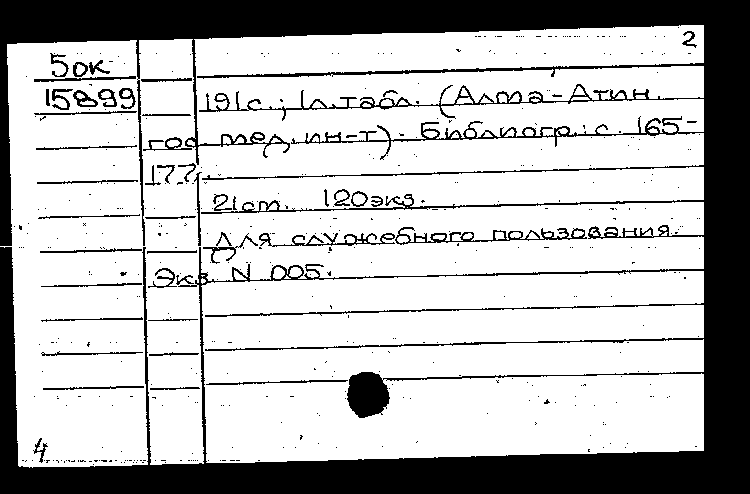 2
5ок
15899 191с.; 1л.табл. (Алма-Атин.
гос. мед. ин-т). Библиогр.: с. 165-
177.
21см. 120экз.
Для служебного пользования.
Экз. N 005.
4